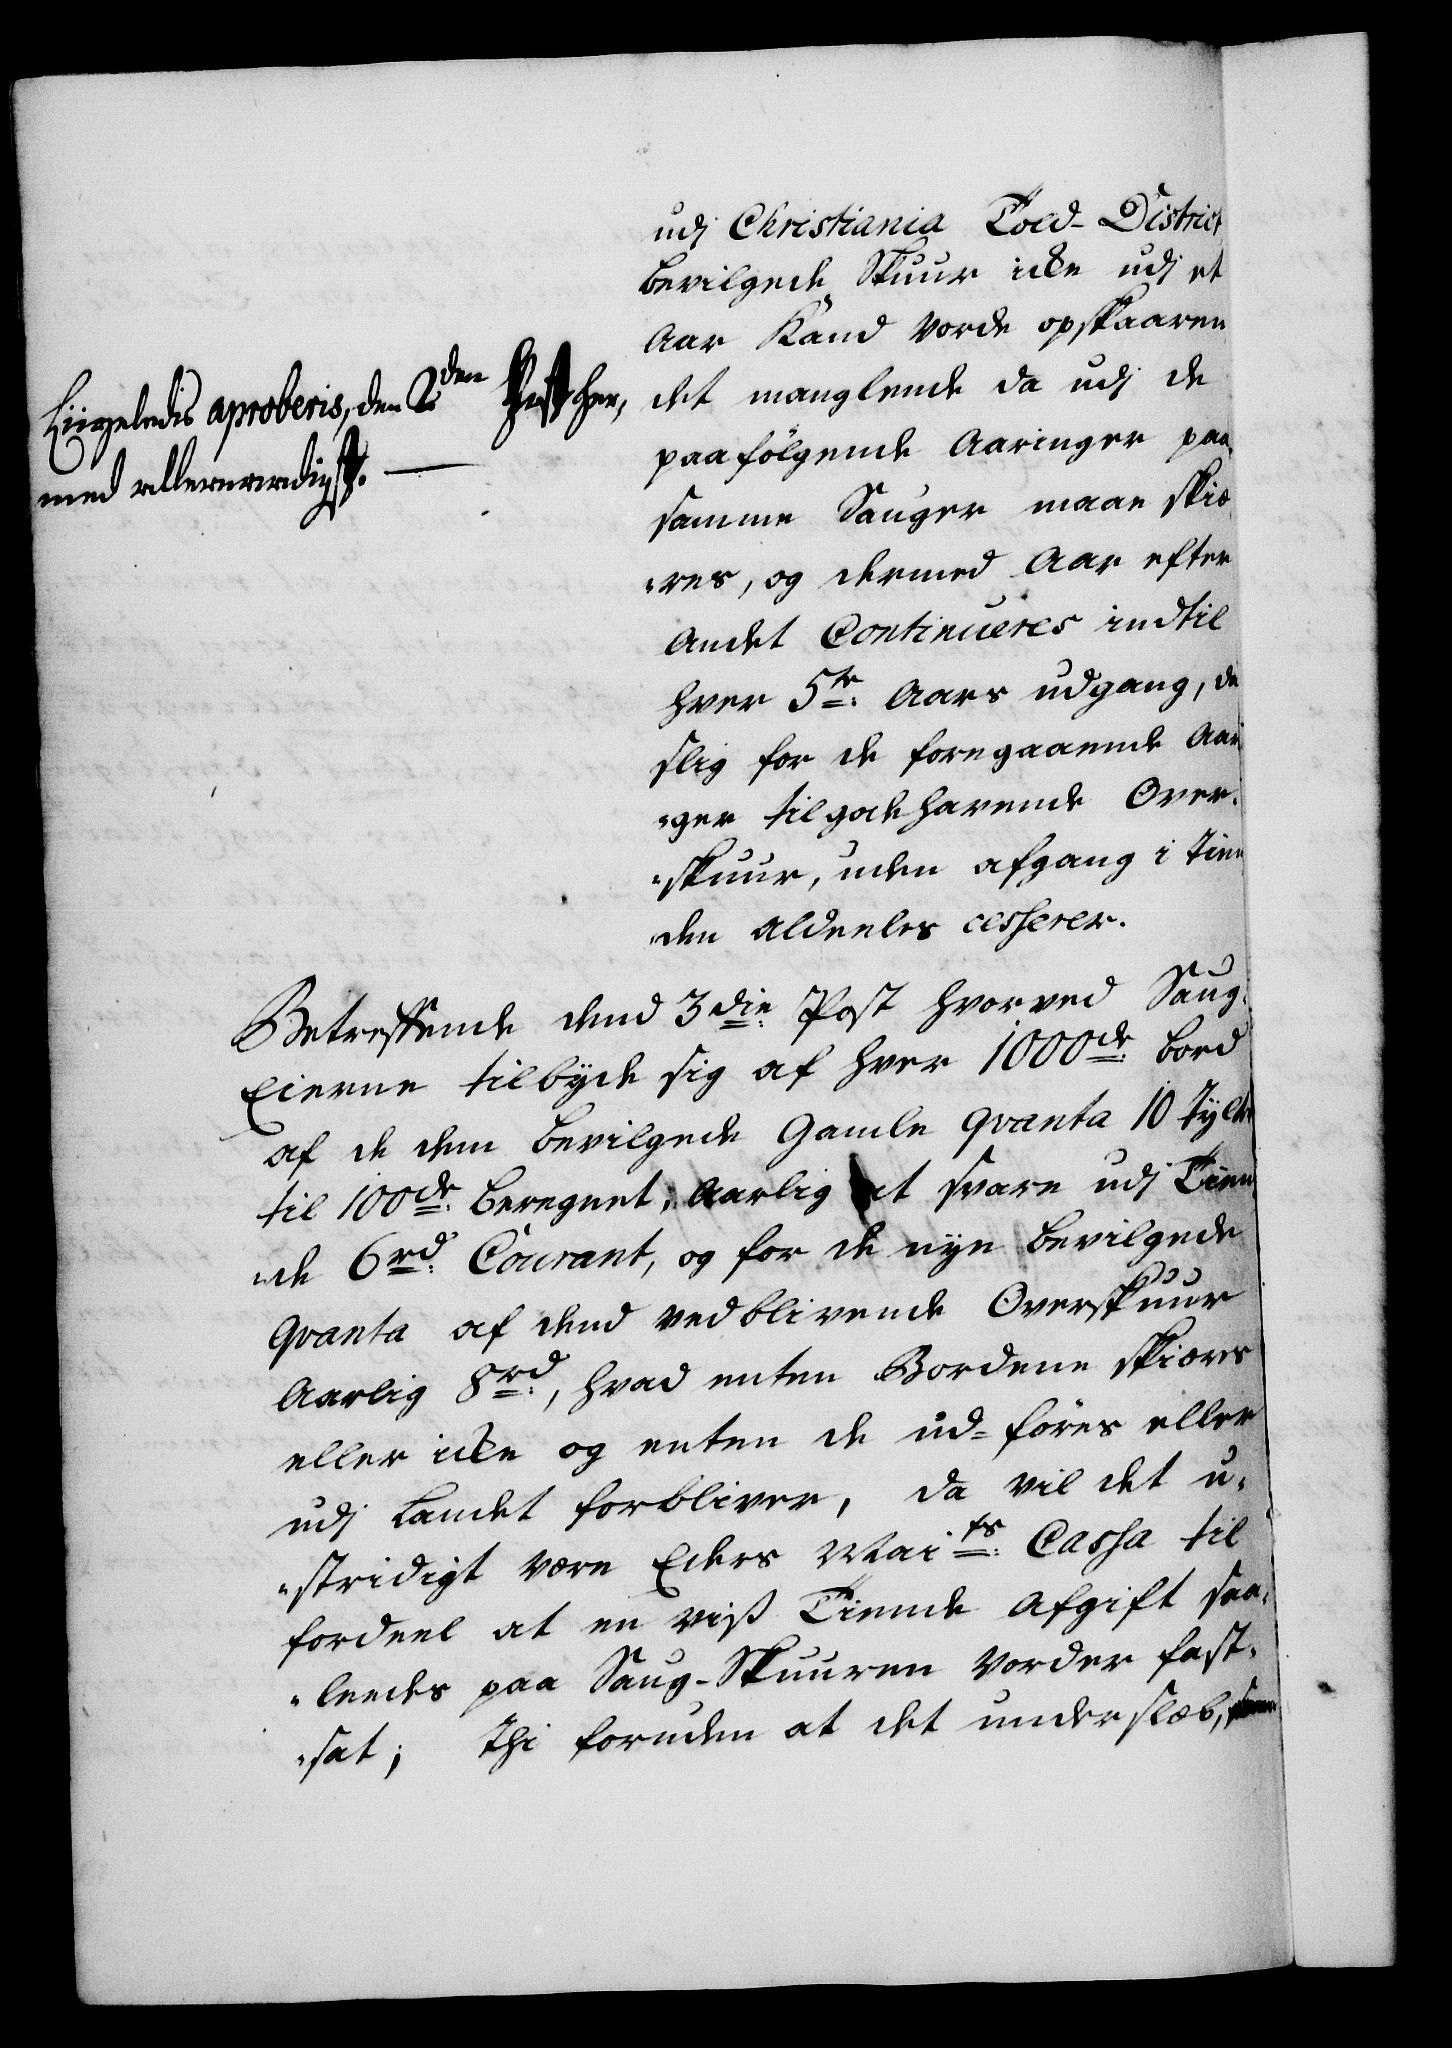 udj Christiania Told-District
bevilgede Skuur icke udj et
Aar Kand vorde opskaaren
det manglende da udj de
paafölgende Aaringer paa
samme Sauger maae skiæ
"res, og dermed Aar efter
Andet Continueres indtil
hver 5te Aars udgang, da
slig for de foregaaende Aarin
"ger tilgodehavende Over-
"skuur, uden afgang i Tien
"den aldeeles cesserer.
Liigeledis aproberis, den 2den Post her,
med allerunderdigst.
Betreffende dend 3die Post hvorved Saug-
Eierne tilbyde sig af hver 1000de bord
af de dem bevilgede Gamle qvanta 10 Tylter
til 100de beregnet, Aarlig at svare udj Tien
"de 6rd Courant, og for de nye bevilgede
qvanta af dend vedblivende Overskuur
Aarlig 8rd, hvad enten Bordene skiæres
eller icke og enten de ud-föres eller
udj Landet forbliver, da vil det u-
"stridigt være Eders Maits Cassa til
fordeel at en viss Tiende Afgift saa-
"leedes paa Saug-Skuuren vorder fast-
"sat; Thi foruden at det underslæb,